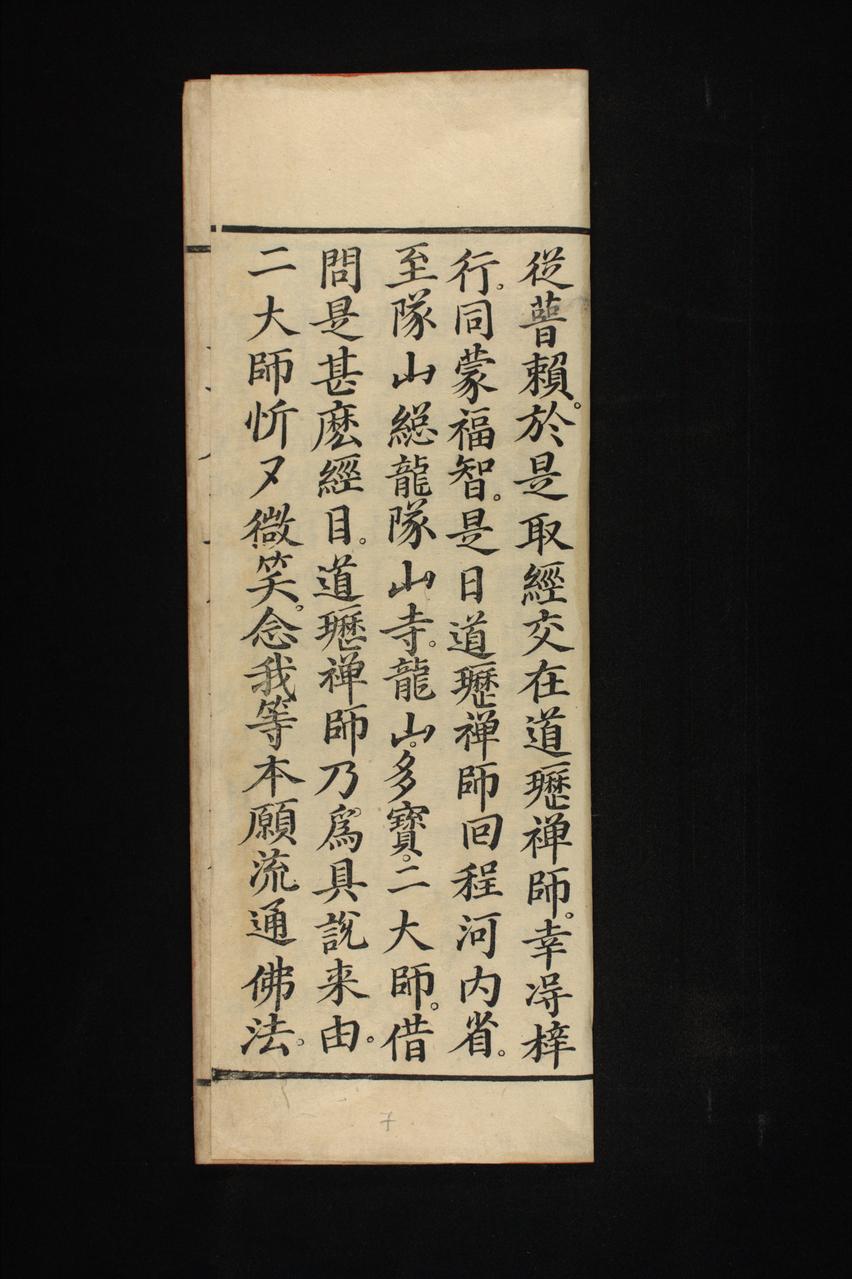 從普賴。於是取經交在道瓑禅師。幸淂梓
行。同蒙福智。是日道瓑禅師回程河内省。
至隊山緫龍隊山寺。龍山。多寶。二大師。借
問是甚麽經目。道瓑禅師乃爲具說来由。
二大師忻又微笑。念我等本願流通佛法。